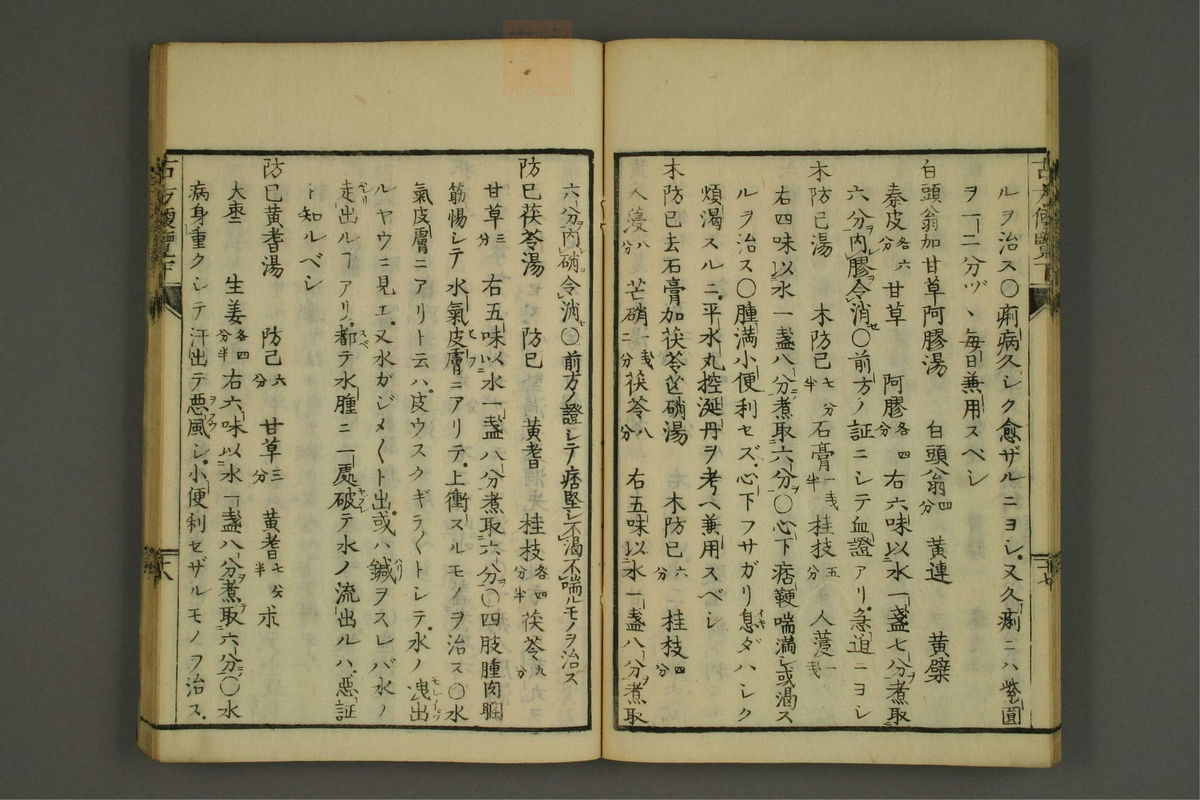 ルヲ治ス〇痢病久シク愈ザルニヨシ又久痢ニハ紫圓
ヲ一二分ヅヽ毎日兼用スベシ
白頭翁加甘草阿膠湯 白頭翁四分 黄連 黄蘗
秦皮各六分 甘草 阿膠各四分 右六味以水一盞七分煮取
六分内膠令消〇前方ノ証ニシテ血證アリ急迫ニヨシ
木防已湯 木防已七分半 石膏一戔半 桂枝五分 人薓一戔
右四味以水一盞八分煮取六分〇心下痞鞕喘滿シ或渇ス
ルヲ治ス〇腫滿小便利セズ心下フサガリ息ダハシク
煩渇スルニ平水丸控涎丹ヲ考ヘ兼用スベシ
木防已去石膏加茯苓芒硝湯 木防已六分 桂枝四分
人薓八分 芒硝一戔二分 茯苓八分 右五味以水一盞八分煮取
六分内硝令消〇前方ノ證シテ痞堅シ不渇不喘ルモノヲ治ス
防已茯苓湯 防已 黄耆 桂枝各四分半 茯苓九分
甘草三分 右五味以水一盞八分煮取六分〇四肢腫肉𥆧
筋惕シテ水氣皮膚ニアリテ上衝スルモノヲ治ス〇水
氣皮膚ニアリト云ハ皮ウスクギラ〱トシテ水ノ洩出
ルヤウニ見エ又水ガジメ〱ト出或ハ鍼ヲスレバ水ノ
走出ルヿアリ都テ水腫ニ一處破テ水ノ流出ルハ悪証
ト知ルベシ
防已黄耆湯 防已六分 甘草三分 黄耆七分半 朮
大棗 生姜各四分半 右六味以水一盞八分煮取六分〇水
病身重クシテ汗出テ悪風シ小便利セザルモノヲ治ス
古方便覽下
十七
古方便覽下
十八